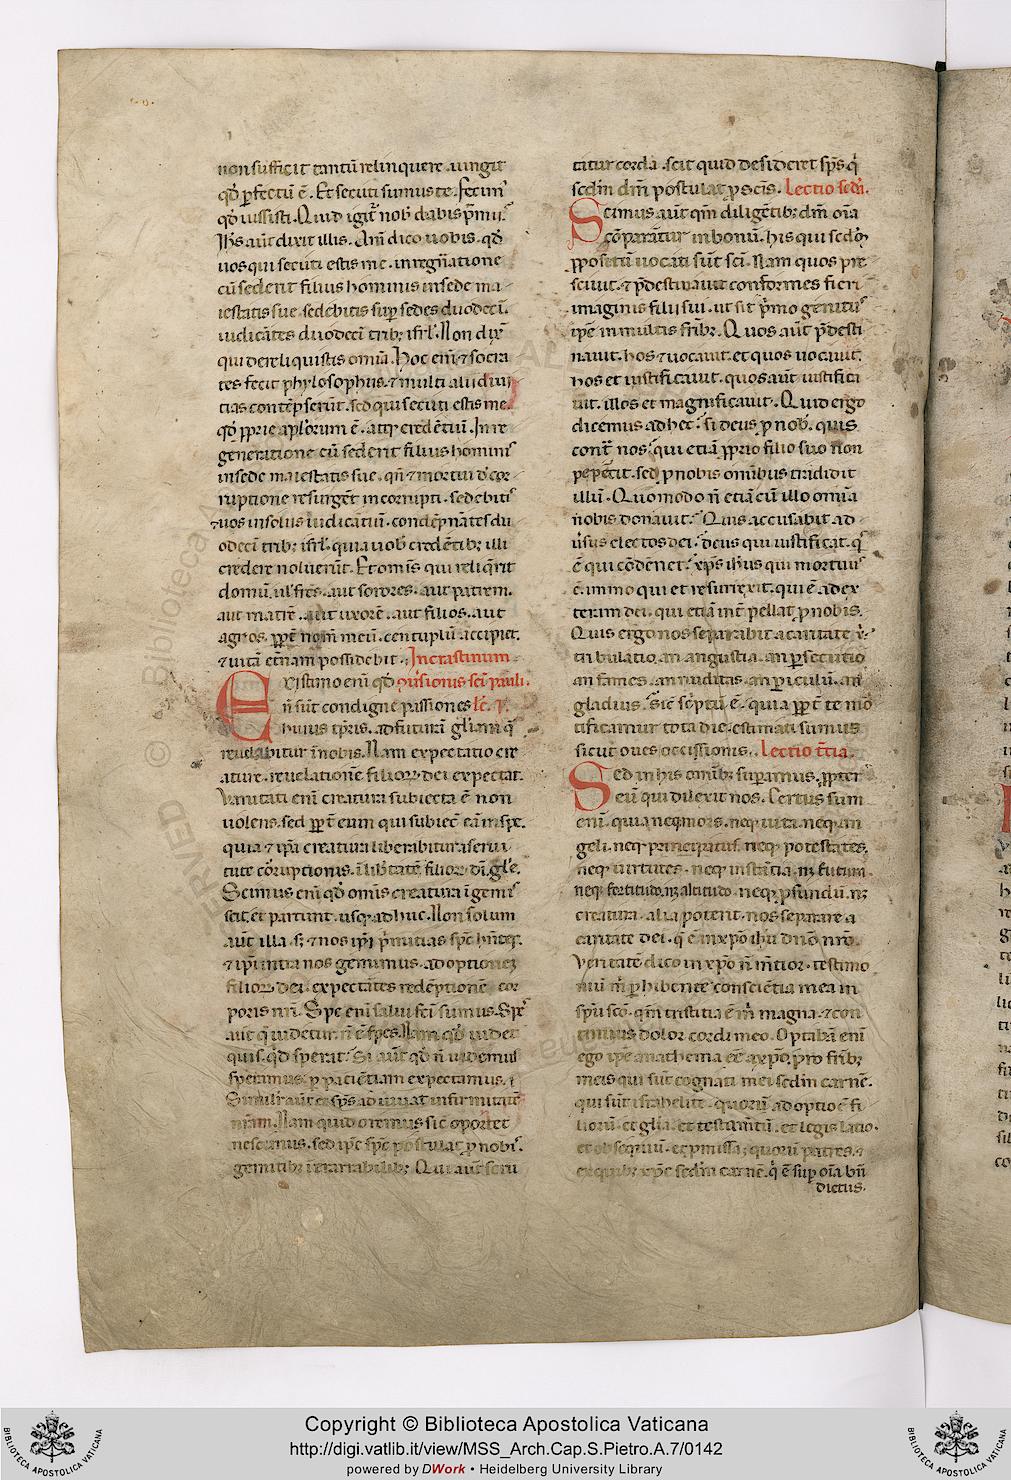 non sufficit tantū relinquere. iungit
qđ ꝑfectū ē. Et secuti sumus te. fecim᷒
qđ iussisti. Quid igit᷑ nob dabis p̄mii.
Ih̄s aūt dixit illis. Am̄ dico uobis. qđ
uos qui secuti estis me. in regn̄atione
cū sederit filius hominis in sede ma
iestatis sue. sedebitis sup̄ sedes duodecī.
iudicātes duodecī trib; isrl̄. Non dix̄
qui dereliquistis omīa. Hoc eni᷒ ⁊ socra
tes fecit phylosophus. ⁊ multi alii diui
tias contēpserūt. sed qui secuti estis me.
qđ ꝓprie aplōrum ē. atq; credētiū. In re
generatione cū sederit filius homini᷒
in sede maiestatis sue. qn̄ ⁊ mortui d̄ cor
ruptione resurgēt incorrupti. sedebiti᷒
⁊ uos in soliis iudicātiū. condēp̄nātes du
odecī trib; isrl̄. quia uob credētib; illi
credere noluerūt. Et omīs qui reliq̄rit
domū. ul̄ frēs. aut sorores. aut patrem.
aut matrē. aut uxorē. aut filios. aut
agros. ꝓpt̄ nom̄ meū. centuplū accipiet.
⁊ uitā et̄nam possidebit. In crastinum
Existimo enī qđ ꝯu᷒sionis scī pauli.
n̄ sūt condigne passiones lc̄. ı.
huius tp̄ris. ad futurā gl̄iam q̄
reuelabitur ī nobis. Nam expectatio cre
ature. reuelationē filioꝝ dei expectat.
Vanitati enī creatura subiecta ē non
uolens. sed ꝓpt̄ eum qui subiec̄ eā in spe.
quia ⁊ ip̄a creatura liberabitur a serui
tute cōrruptionis. ī lib̄tatē filioꝝ dī. gl̄e.
Scimus enī qđ omīs creatura īgemi᷒
scit. et parturit. usq; adhuc. Non solum
aūt illa. s; ⁊ nos ip̄i p̄mitias sp̄c hn̄tes.
⁊ ip̄i intra nos gemimus. adoptionē
filioꝝ dei expectātes redēptionē cor
poris nr̄i. Spe enī salui scī sumus. Spes
aūt q̄ uidetur. n̄ ē spes. Nam qđ uidet
quis. qđ sperat. Si aūt qđ n̄ uidemus
speramus. ꝑ paciētiam expectamus.
Similit̄ aūt et sp̄s adiuuat infirmitatē
nr̄am. Nam quid oremus sic̄ oportet
nescimus. sed ip̄e sp̄c postulat ꝓ nobi᷒.
gemitib; īenarrabilib;. Qui aūt scru
titur corda. scit quid desideret sp̄s. q̄
sc̄dm dm̄ postulat ꝓ sc̄is. Lectio sc̄da.
Scimus aūt qm̄ diligētib; dm̄ oīa
cōꝑarātur in bonū. his qui sc̄dm
ꝓpositū uocati sūt scī. Nam quos pre
sciuit. ⁊ p̄destinauit conformes fieri
imaginis filii sui. ut sit p̄mogenitus
ip̄e in multis frīb;. Quos aūt p̄desti
nauit. hos ⁊ uocauit. et quos uocauit.
hos et iustificauit. quos aūt iustifica
uit. illos et magnificauit. Quid ergo
dicemus ad hec. si deus ꝓ nob. quis
cont̄ nos. qui etiā ꝓprio filio suo non
pepercit. sed ꝓ nobis omībus tradidit
illū. Quomodo n̄ etiā cū illo omīa
nobis donauit. Quis accusabit ad
u᷒sus electos dei. deus qui iustificat. q᷒
ē qui cōdēnet. xp̄s ih̄us qui mortuus
ē. immo qui et resurrexit. qui ē ad dex
teram dei. qui etiā int̄pellat ꝓ nobis.
Quis ergo nos separabit a caritate x̄.
tribulatio. an angustia. an ꝑsecutio
an fames. an nuditas. an ꝑiculū. an
gladius. Sic̄ scptū ē. quia ꝓpt̄ te mor
tificamur tota die. estimati sumus
sicut oues occissionis. Lectio t̄tia.
Sed in his omīb; superamus. ꝓpter
eū qui dilexit nos. Certus sum
enī. quia neq; mors. neq; uita. neq; an
geli. neq; principatus. neq; potestates.
neq; uirtutes. neq; instātia. neq; futura.
neq; fortitudo. neq; altitudo. neq; ꝓfundū. neq;
creatura alia poterit. nos separare a
caritate dei. q̄ ē in xp̄o ih̄u dn̄o nr̄o.
Veritatē dico in xp̄o n̄ mētior. testimo
niū m̄ ꝑhibente conscietia mea in
sp̄u scō. qm̄ tristitia ē m̄ magna. ⁊ con
tinuus dolor cordi meo. Optabā enī
ego ip̄e anathema eē a xp̄o. ꝓ frīb;
meis qui sūt cognati mei sc̄dm carnē.
qui sūt israhelite. quorū adoptio ē fi
liorū. et gl̄ia. et testam̄tū. et legis latio.
et obsequiū. et ꝓmissa; quorū patres. ⁊
ex quib; xp̄c sc̄dm carnē. q̄ ē sup̄ oīa bn̄
dictus.
Copyright © Biblioteca Apostolica Vaticana
http://digi.vatlib.it/view/MSS_Arch.Cap.S.Pietro.A.7/0142
powered by DWork • Heidelberg University Library